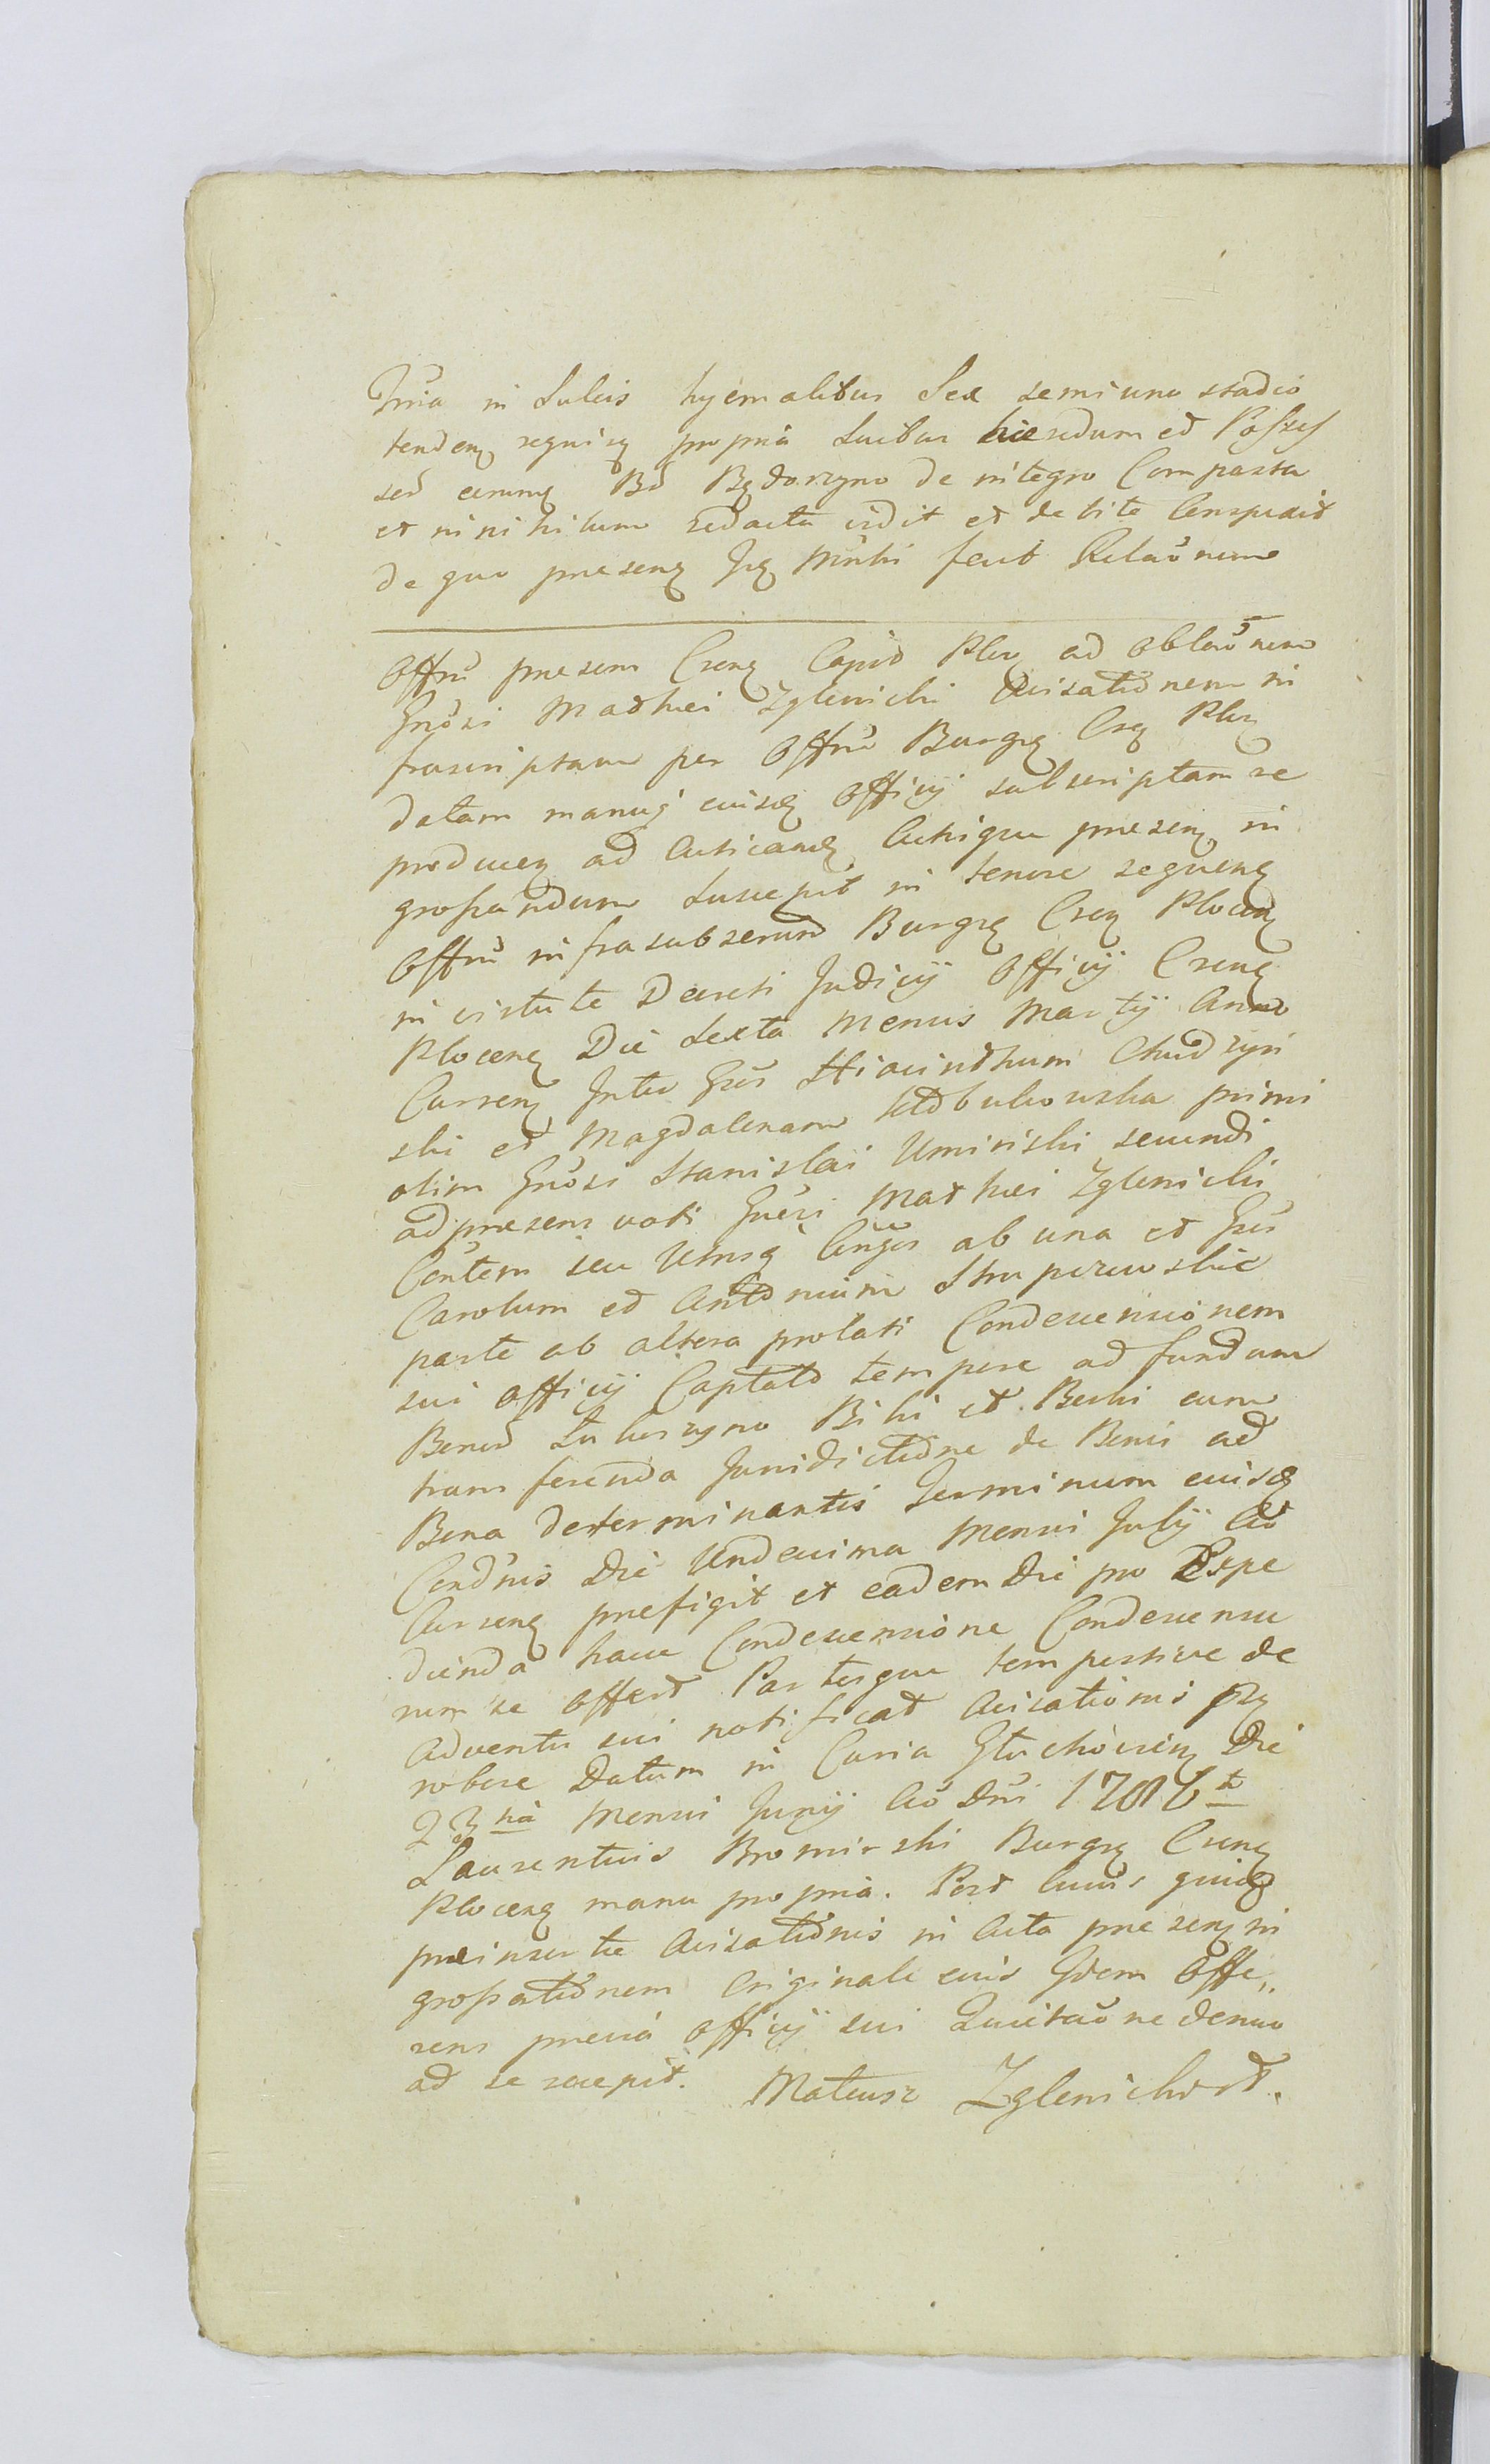 in Sulcis hyemalibus Sex semi uno stadio
tenden propria et Possess
Bd Bądorzyno de integro Comparta
et in nihilum redacta vidit et debite Conspexit
de quo presenq Jrg Mnlri fecit Relaōnem
Offm presens Crenq Capit Plog ad oblaōnem
Gnōsi Mathei Zglenicki Avisationem in
frascriptam per Offm Burgrg Crg Plog
datam manuq eiusq Officij subscriptam re
producen ad acticanq Actisque presenq in
grossandum Suscepit in tenore sequenq
Offm infrasubscrium Burgrg Crenq Plocenq
in virtute Decreti Judicij Officij Crenq
Plocenq Die Sexta Mensis Martij Anno
Currenq Inter Gres Hiacinthum Chudzyn
ski et Magdalenam primi
olim Gnōsi Stanislai Uminski secundi
ad presens voti Gnōsi Mathei Zglenicki
Contem seu ab una et Gres
Carolum et Antonium Strupczewskie
parte ab altera prolati Condescensionem
sui Officij Captato tempore ad fundum
Bonor et cum
transferenda Jurisdictione de Bonis ad
Bona determinantis Terminum eiusq
Condnis Die Undecima Mensi Julij Ao
Currenq prefigit et eadem Die pro Expe
dienda hacce Condescensione Condescensu
rum se offert Partesque tempestive de
adventu sui notificat Avisationis prq
robore Datum in Curia Głuchowienq Die
23na Mensi Junij Ao Dni 1786to
Laurentius Bromirski Burgrg Crenq
Plocenq manu propria. Post cuius quidq
preinserte Avisationis in Acta presenq in
grossationem Originale eius Idem Offe„
rens previa Officij sui Quietaōne denuo
ad se recepit. Mateusz Zglenicki